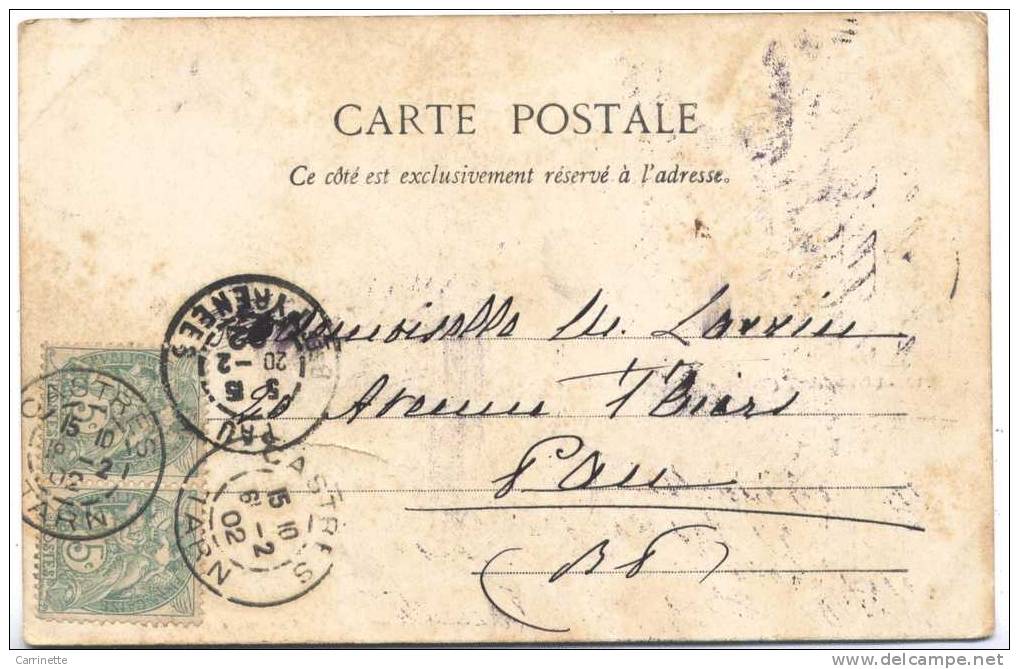 CARTE POSTALE
Ce côté est exclusivement réservé à l'adresse.
Mademoiselle M. Larrieu
20 Avenue Thiers
Pau
(BP)
PAU
PYRENEES
20 -2
CASTRES
15 10
-2
02
TARN
CASTRES
15 10
6 -2
02
TARN
5c
5c
POSTES
Carrinette
delcampe.net